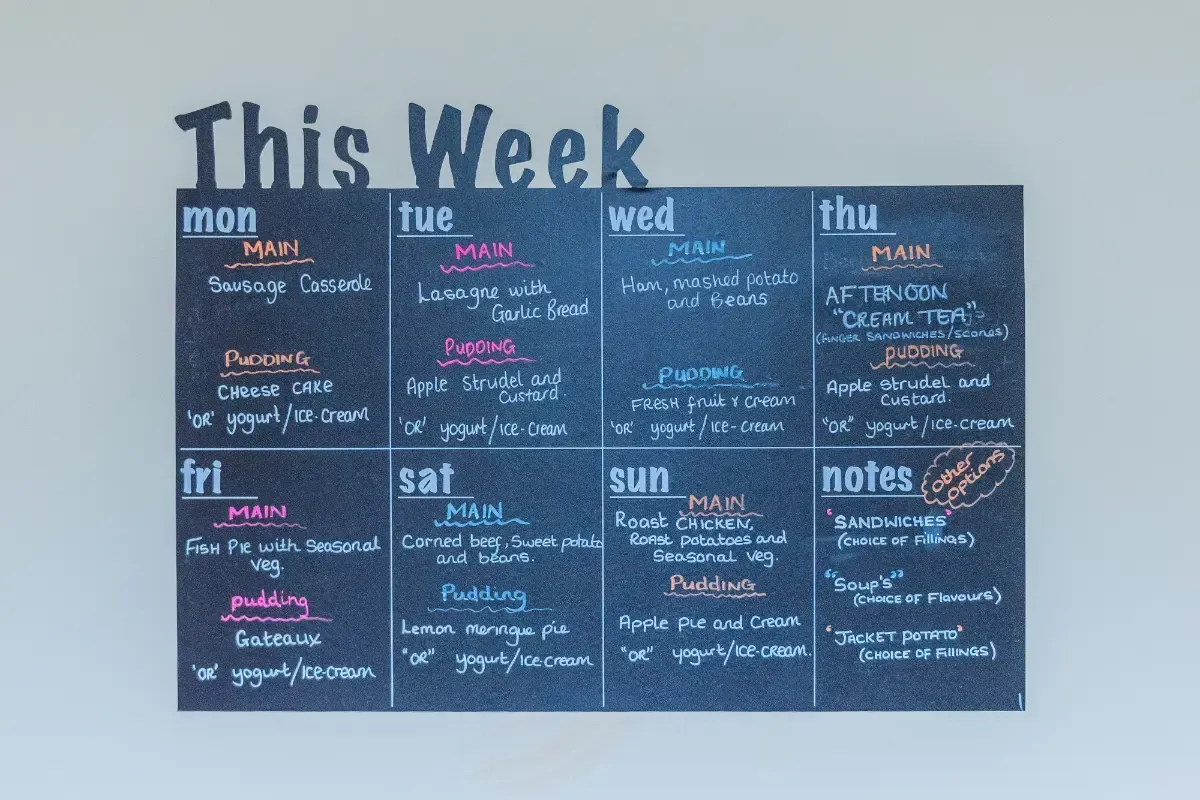 This Week
mon
MAIN
Sausage Casserole
PUDDING
CHEESE CAKE
'OR' yogurt/ICE-Cream
tue
MAIN
Lasagne with
Garlic Bread
PUDDING
Apple Strudel and
Custard.
'OR' yogurt/ICE-Cream
wed
MAIN
Ham, mashed potato
and Beans
PUDDING
FRESH fruit & cream
'OR' yogurt/ICE-Cream
thu
MAIN
AFTERNOON
"CREAM TEA"
(FINGER SANDWICHES/SCONES)
PUDDING
Apple Strudel and
Custard.
"OR" yogurt/ICE-Cream
fri
MAIN
FISH PIE with Seasonal
Veg.
pudding
Gateaux
'OR' yogurt/ICE-Cream
sat
MAIN
Corned beef, Sweet potato
and beans.
Pudding
Lemon meringue pie
"OR" yogurt/ICE-Cream
sun
MAIN
Roast CHICKEN,
Roast potatoes and
Seasonal veg.
Pudding
Apple Pie and Cream
"OR" yogurt/ICE-Cream.
notes
Other
Options
"SANDWICHES"
(CHOICE OF FILLINGS)
"Soup's"
(CHOICE OF Flavours)
"JACKET POTATO"
(CHOICE OF FILLINGS)